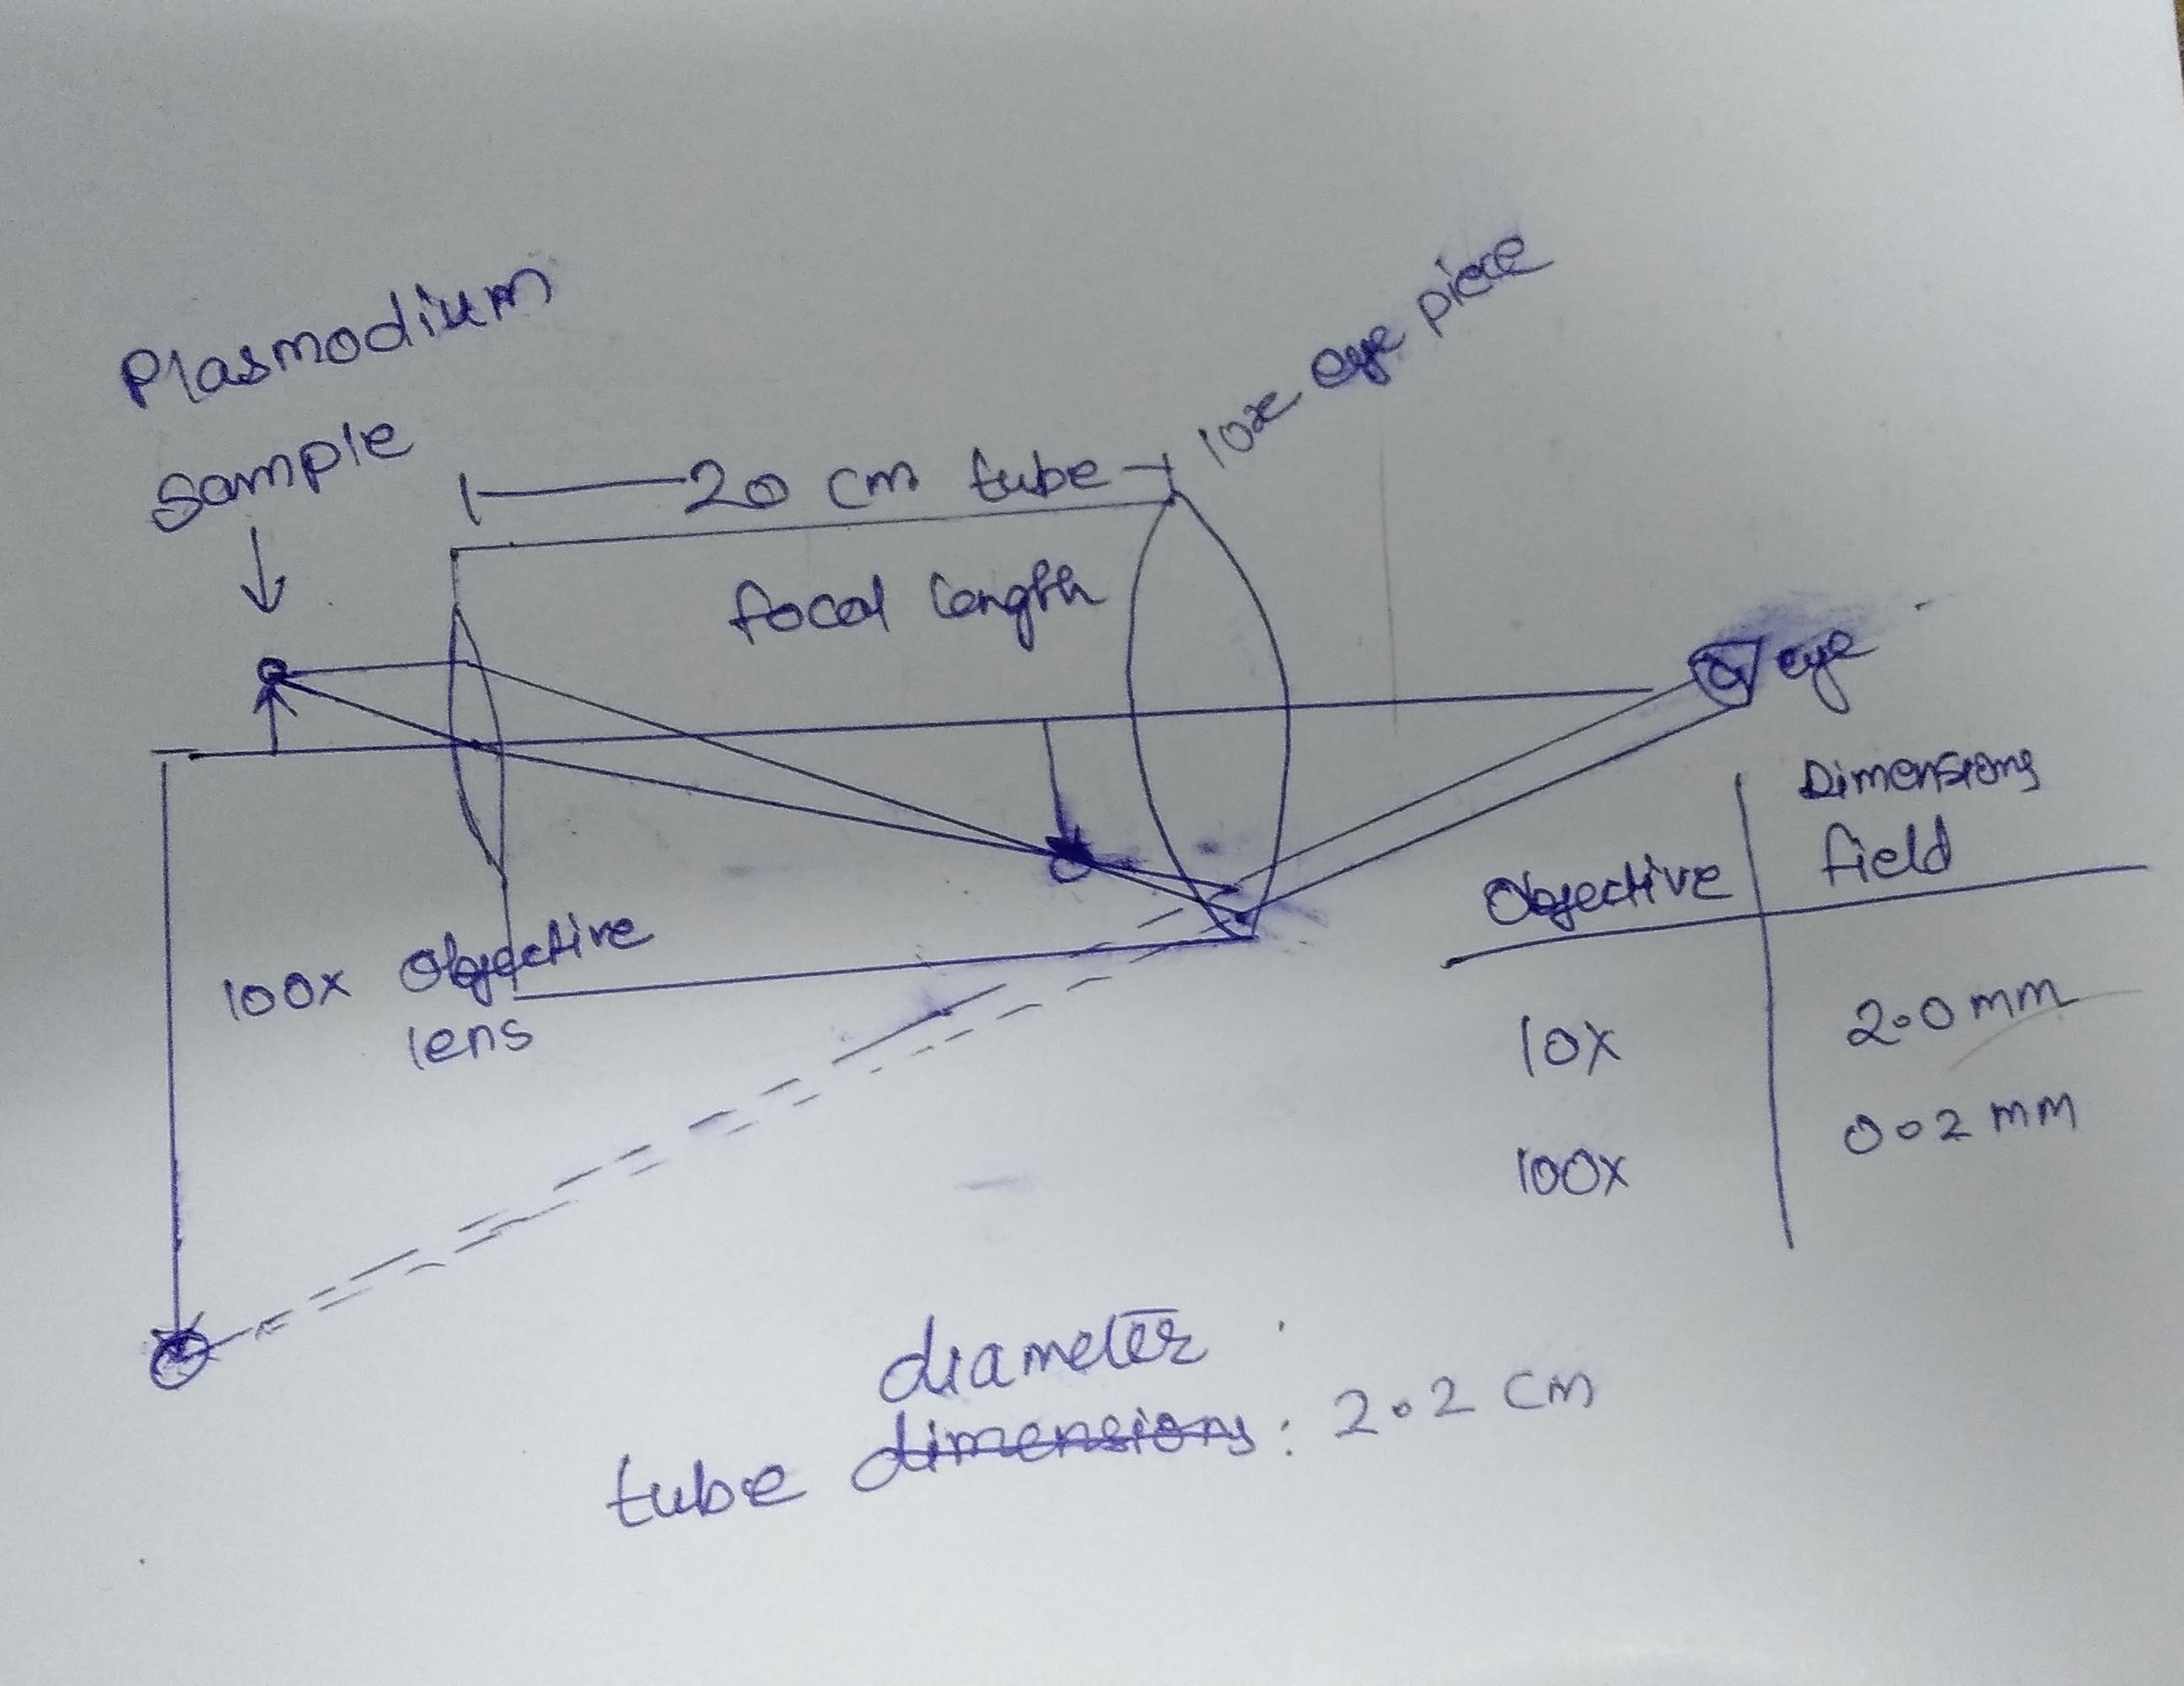 Plasmodium
sample
20 cm tube
10x eye piece
focal length
eye
100x Objective
lens
Objective
Dimensions
field
10x
2.0 mm
100x
0.2 mm
diameter
tube dimensions: 2.2 cm